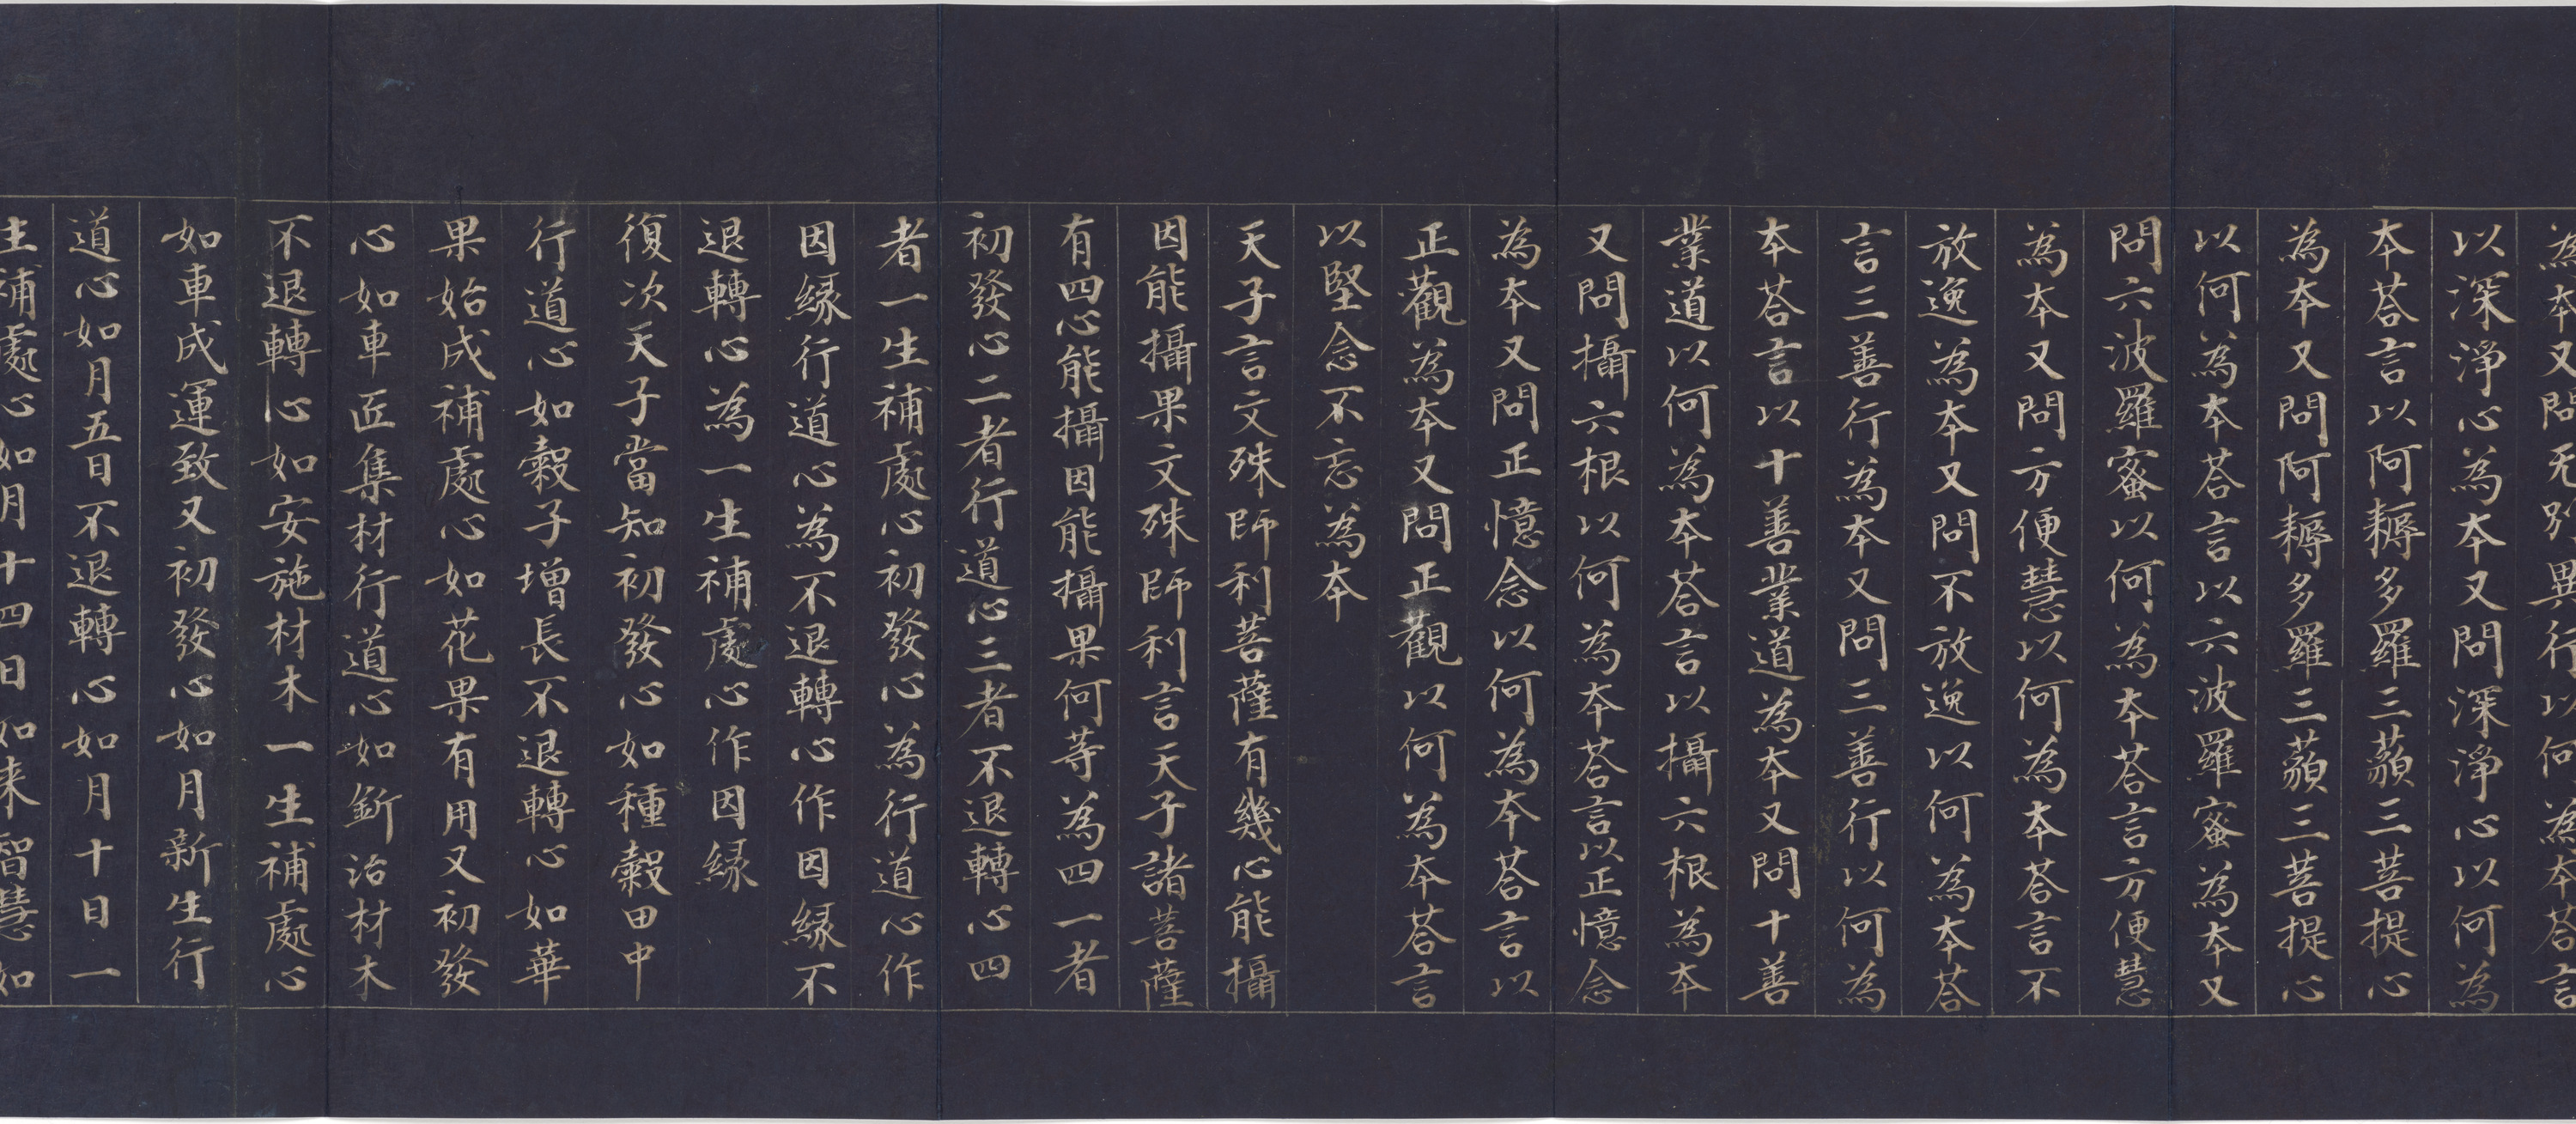 為本又問无別異行以何為本荅言
以深淨心為本又問深淨心以何為
本荅言以阿耨多羅三藐三菩提心
為本又問阿耨多羅三藐三菩提心
以何為本荅言以六波羅蜜為本又
問六波羅蜜以何為本荅言方便慧
為本又問方便慧以何為本荅言不
放逸為本又問不放逸以何為本荅
言三善行為本又問三善行以何為
本荅言以十善業道為本又問十善
業道以何為本荅言以攝六根為本
又問攝六根以何為本荅言以正憶念
為本又問正憶念以何為本荅言以
正觀為本又問正觀以何為本荅言
以堅念不忘為本
天子言文殊師利菩薩有幾心能攝
因能攝果文殊師利言天子諸菩薩
有四心能攝因能攝果何等為四一者
初發心二者行道心三者不退轉心四
者一生補處心初發心為行道心作
因緣行道心為不退轉心作因緣不
退轉心為一生補處心作因緣
復次天子當知初發心如種穀田中
行道心如穀子增長不退轉心如華
果始成補處心如花果有用又初發
心如車匠集材行道心如斲治材木
不退轉心如安施材木一生補處心
如車成運致又初發心如月新生行
道心如月五日不退轉心如月十日一
生補處心如月十四日如来智慧如